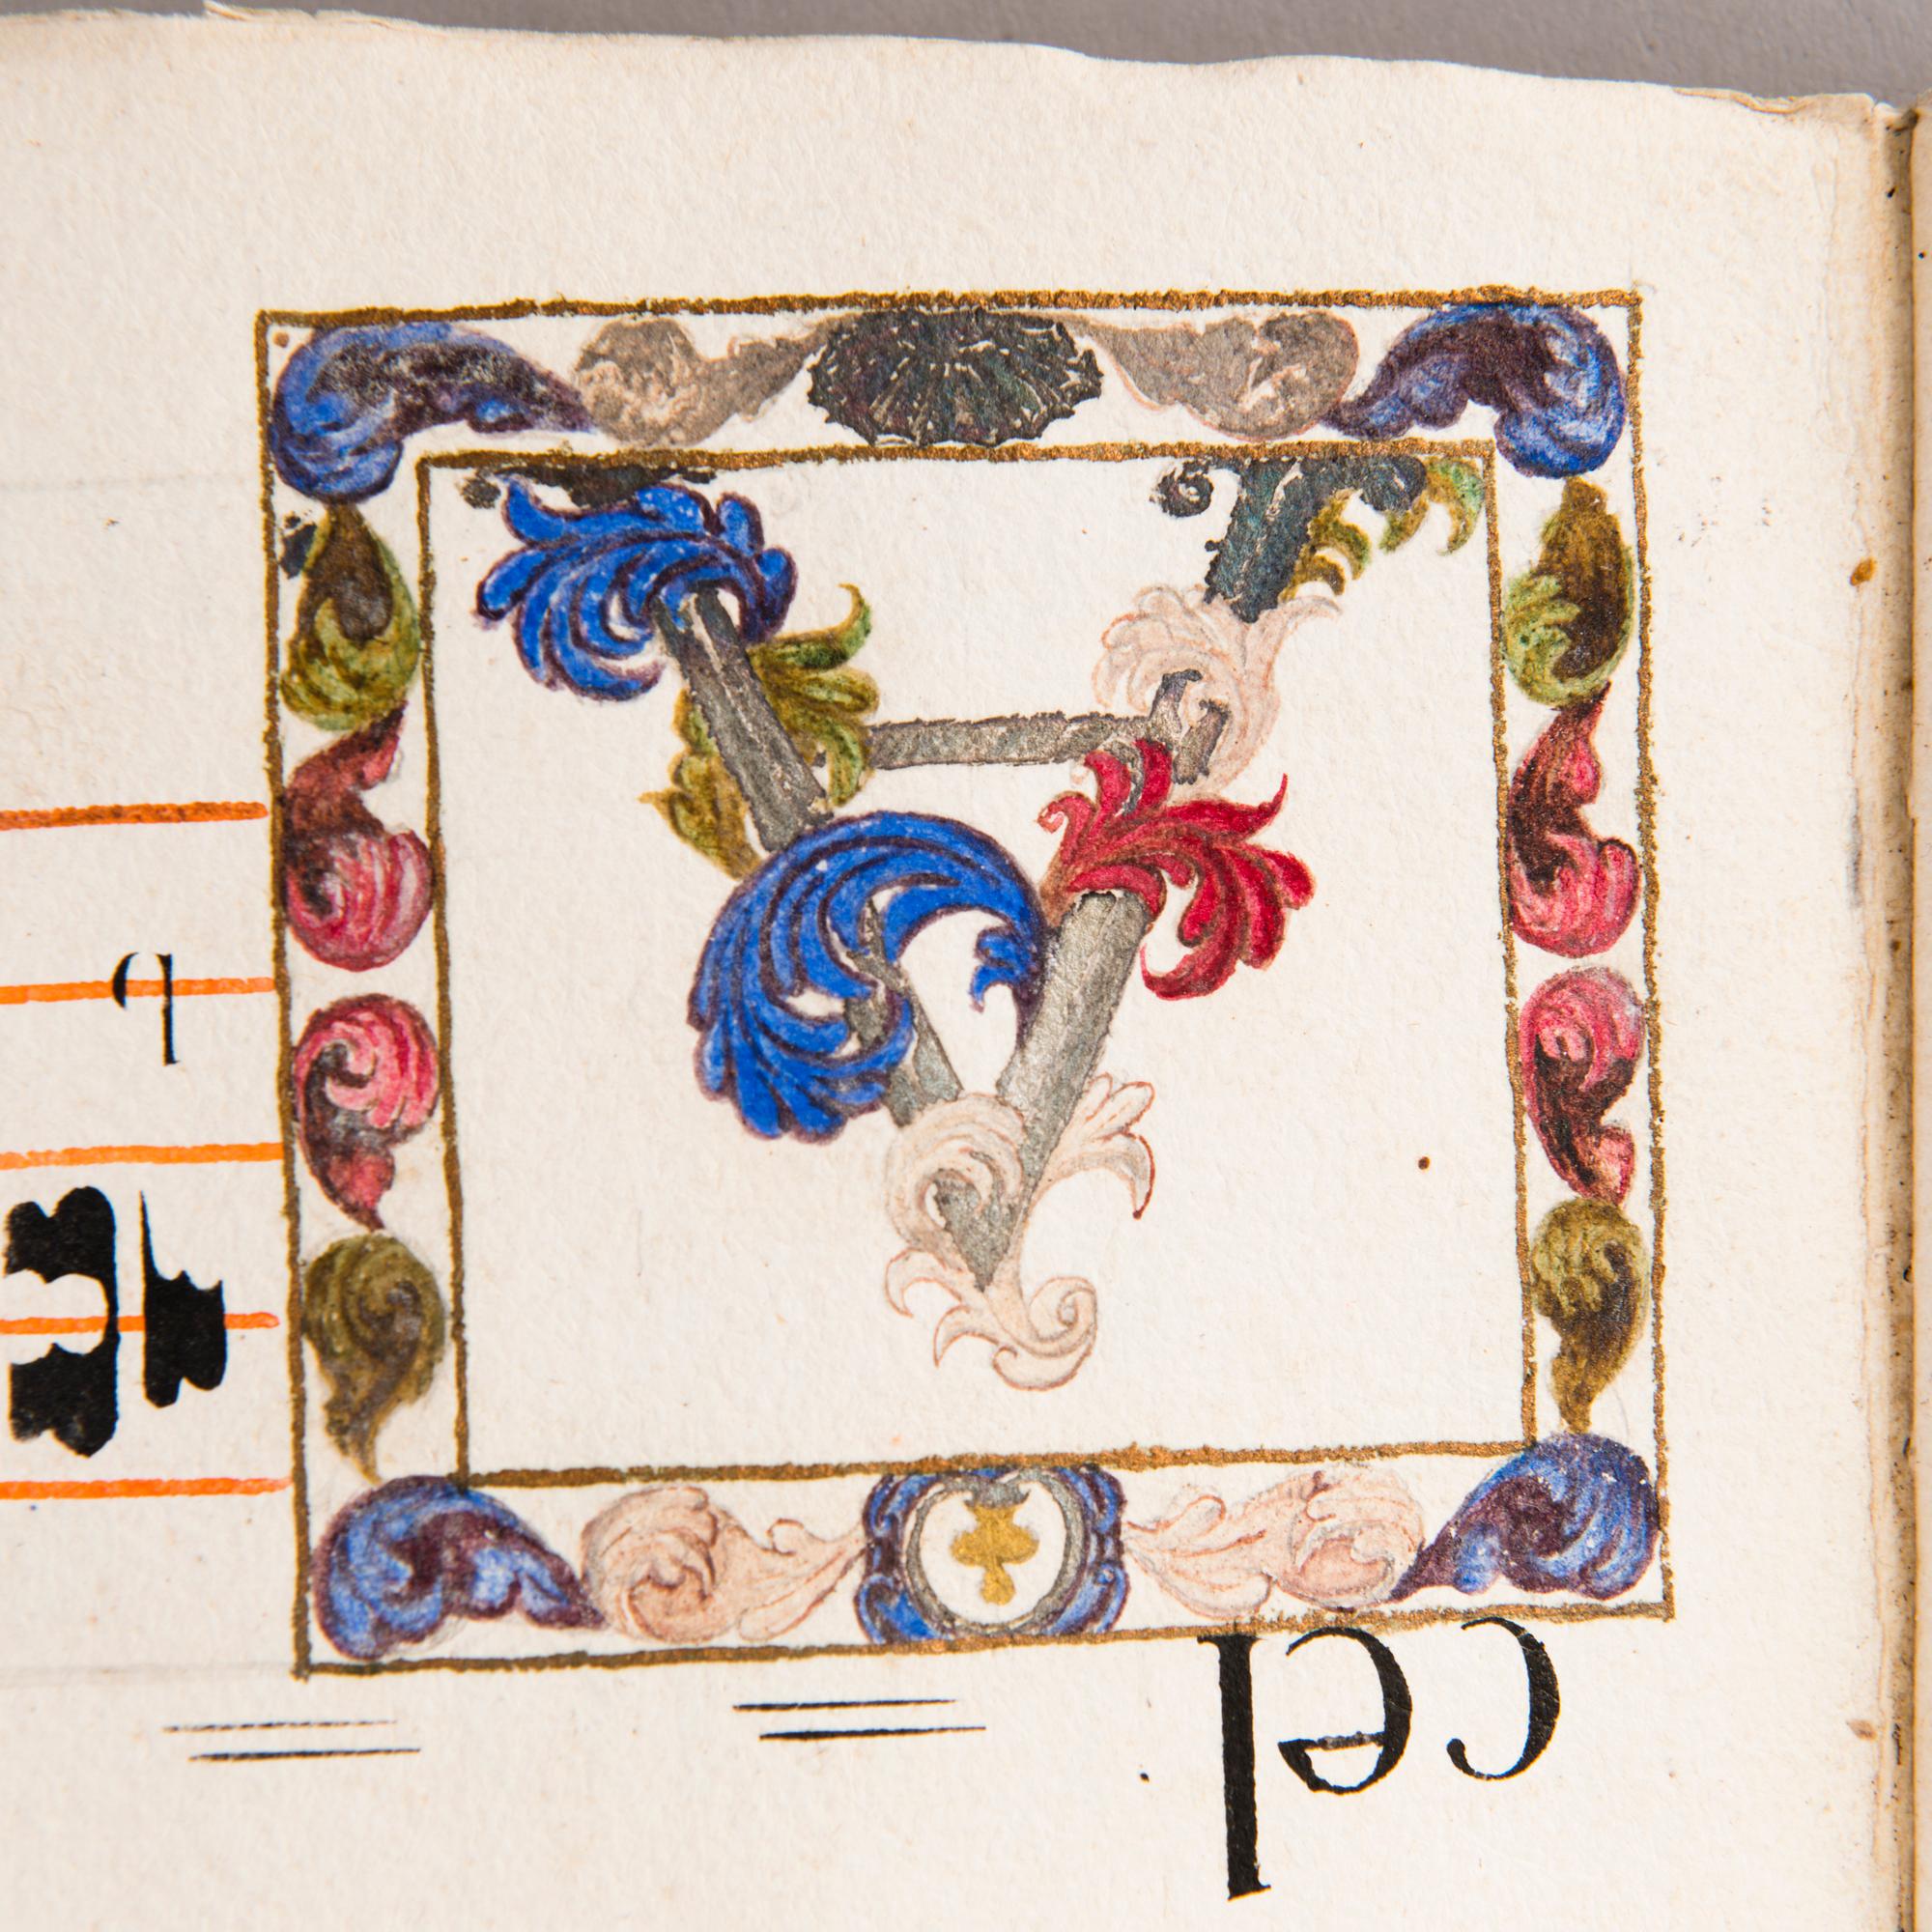 cel = =
A